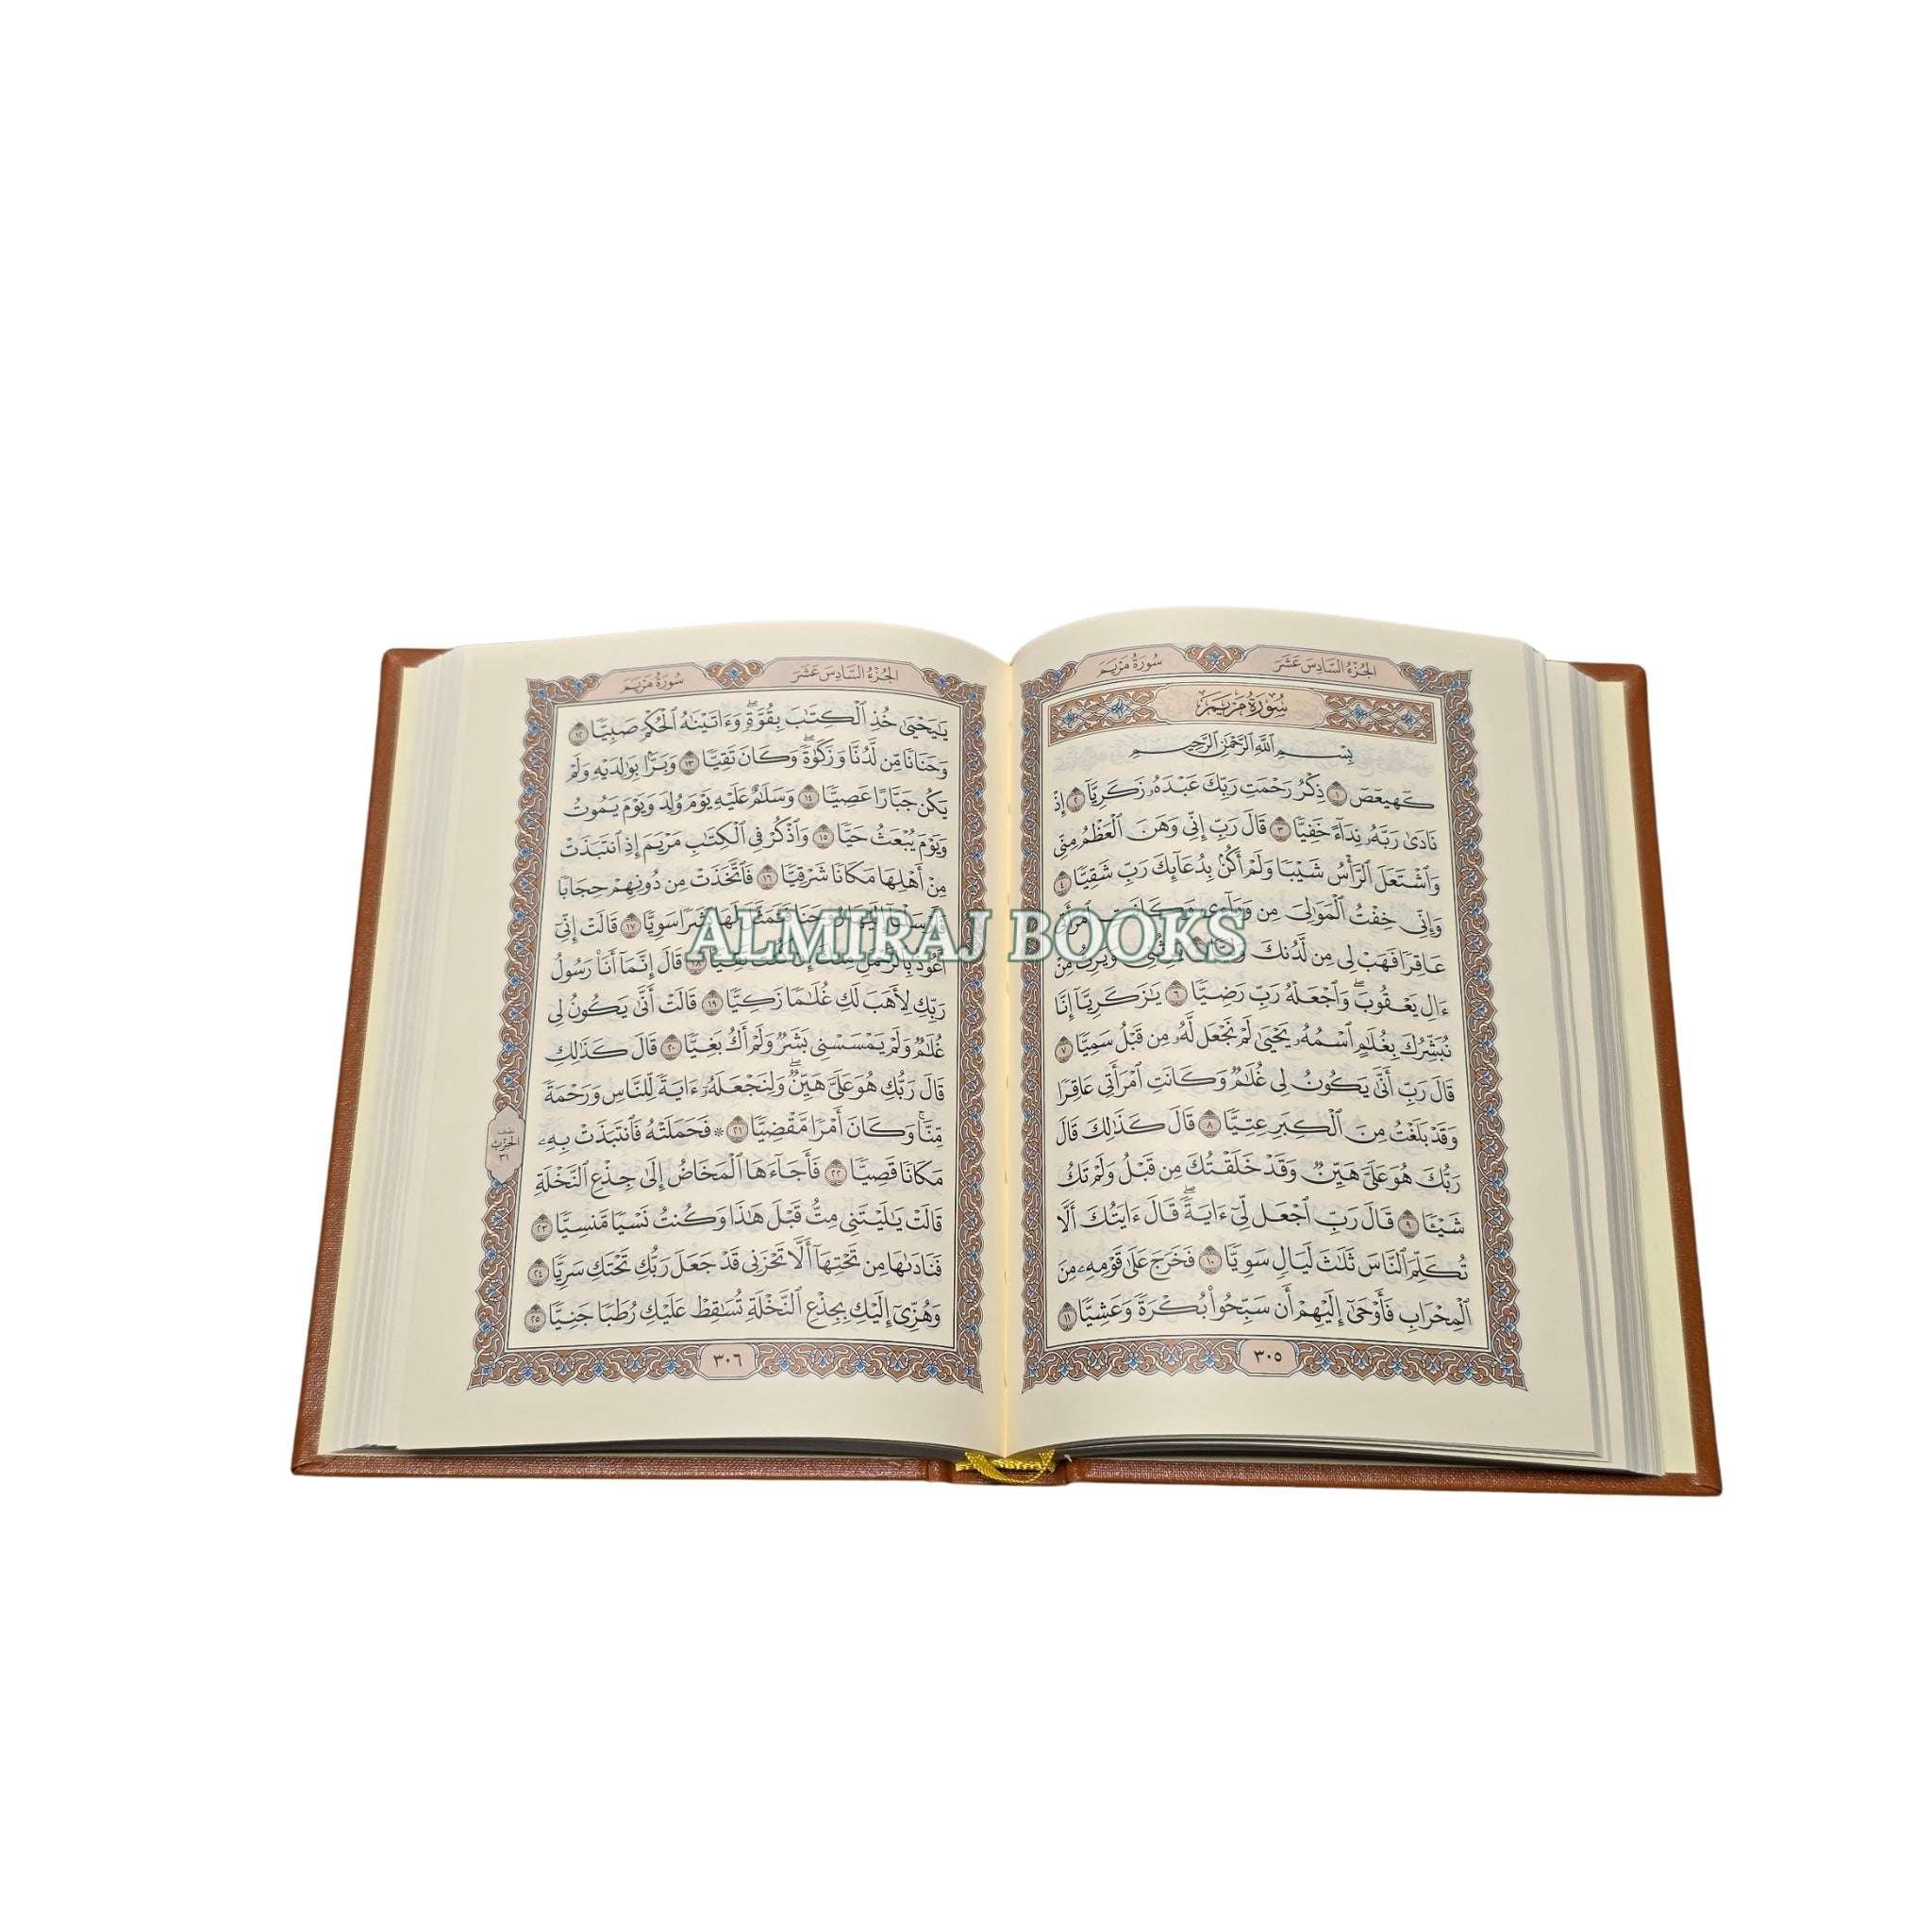 الجزء السادس عشر
سورة مريم
سُورَةُ مَرْيَمَ
بِسْمِ ٱللَّهِ ٱلرَّحْمَٰنِ ٱلرَّحِيمِ
كٓهيعٓصٓ ١ ذِكْرُ رَحْمَتِ رَبِّكَ عَبْدَهُۥ زَكَرِيَّآ ٢ إِذْ
نَادَىٰ رَبَّهُۥ نِدَآءً خَفِيًّا ٣ قَالَ رَبِّ إِنِّي وَهَنَ ٱلْعَظْمُ مِنِّي
وَٱشْتَعَلَ ٱلرَّأْسُ شَيْبًا وَلَمْ أَكُنۢ بِدُعَآئِكَ رَبِّ شَقِيًّا ٤
وَإِنِّي خِفْتُ ٱلْمَوَٰلِيَ مِن وَرَآءِي وَكَانَتِ ٱمْرَأَتِي
عَاقِرًا فَهَبْ لِي مِن لَّدُنكَ وَيَرِثُ مِنْ
ءَالِ يَعْقُوبَ ۖ وَٱجْعَلْهُ رَبِّ رَضِيًّا ٦ يَٰزَكَرِيَّآ إِنَّا
نُبَشِّرُكَ بِغُلَٰمٍ ٱسْمُهُۥ يَحْيَىٰ لَمْ نَجْعَل لَّهُۥ مِن قَبْلُ سَمِيًّا ٧
قَالَ رَبِّ أَنَّىٰ يَكُونُ لِي غُلَٰمٌ وَكَانَتِ ٱمْرَأَتِي عَاقِرًا
وَقَدْ بَلَغْتُ مِنَ ٱلْكِبَرِ عِتِيًّا ٨ قَالَ كَذَٰلِكَ قَالَ
رَبُّكَ هُوَ عَلَيَّ هَيِّنٌ وَقَدْ خَلَقْتُكَ مِن قَبْلُ وَلَمْ تَكُ
شَيْـًٔا ٩ قَالَ رَبِّ ٱجْعَل لِّيٓ ءَايَةً ۚ قَالَ ءَايَتُكَ أَلَّا
تُكَلِّمَ ٱلنَّاسَ ثَلَٰثَ لَيَالٍ سَوِيًّا ١٠ فَخَرَجَ عَلَىٰ قَوْمِهِۦ مِنَ
ٱلْمِحْرَابِ فَأَوْحَىٰٓ إِلَيْهِمْ أَن سَبِّحُوا۟ بُكْرَةً وَعَشِيًّا ١١
٣٠٥
الجزء السادس عشر
سورة مريم
يَٰيَحْيَىٰ خُذِ ٱلْكِتَٰبَ بِقُوَّةٍ ۖ وَءَاتَيْنَٰهُ ٱلْحُكْمَ صَبِيًّا ١٢
وَحَنَانًا مِّن لَّدُنَّا وَزَكَوٰةً ۖ وَكَانَ تَقِيًّا ١٣ وَبَرًّۢا بِوَٰلِدَيْهِ وَلَمْ
يَكُن جَبَّارًا عَصِيًّا ١٤ وَسَلَٰمٌ عَلَيْهِ يَوْمَ وُلِدَ وَيَوْمَ يَمُوتُ
وَيَوْمَ يُبْعَثُ حَيًّا ١٥ وَٱذْكُرْ فِي ٱلْكِتَٰبِ مَرْيَمَ إِذِ ٱنتَبَذَتْ
مِنْ أَهْلِهَا مَكَانًا شَرْقِيًّا ١٦ فَٱتَّخَذَتْ مِن دُونِهِمْ حِجَابًا
فَأَرْسَلْنَآ إِلَيْهَا رُوحَنَا فَتَمَثَّلَ لَهَا بَشَرًا سَوِيًّا ١٧ قَالَتْ إِنِّيٓ
أَعُوذُ بِٱلرَّحْمَٰنِ مِنكَ إِن كُنتَ تَقِيًّا ١٨ قَالَ إِنَّمَآ أَنَا۠ رَسُولُ
رَبِّكِ لِأَهَبَ لَكِ غُلَٰمًا زَكِيًّا ١٩ قَالَتْ أَنَّىٰ يَكُونُ لِي
غُلَٰمٌ وَلَمْ يَمْسَسْنِي بَشَرٌ وَلَمْ أَكُ بَغِيًّا ٢٠ قَالَ كَذَٰلِكِ
قَالَ رَبُّكِ هُوَ عَلَيَّ هَيِّنٌ ۖ وَلِنَجْعَلَهُۥٓ ءَايَةً لِّلنَّاسِ وَرَحْمَةً
مِّنَّا ۚ وَكَانَ أَمْرًا مَّقْضِيًّا ٢١ * فَحَمَلَتْهُ فَٱنتَبَذَتْ بِهِۦ
مَكَانًا قَصِيًّا ٢٢ فَأَجَآءَهَا ٱلْمَخَاضُ إِلَىٰ جِذْعِ ٱلنَّخْلَةِ
قَالَتْ يَٰلَيْتَنِي مِتُّ قَبْلَ هَٰذَا وَكُنتُ نَسْيًا مَّنسِيًّا ٢٣
فَنَادَىٰهَا مِن تَحْتِهَآ أَلَّا تَحْزَنِي قَدْ جَعَلَ رَبُّكِ تَحْتَكِ سَرِيًّا ٢٤
وَهُزِّيٓ إِلَيْكِ بِجِذْعِ ٱلنَّخْلَةِ تُسَٰقِطْ عَلَيْكِ رُطَبًا جَنِيًّا ٢٥
نصف
الحزب
٣١
٣٠٦
ALMIRAJ BOOKS